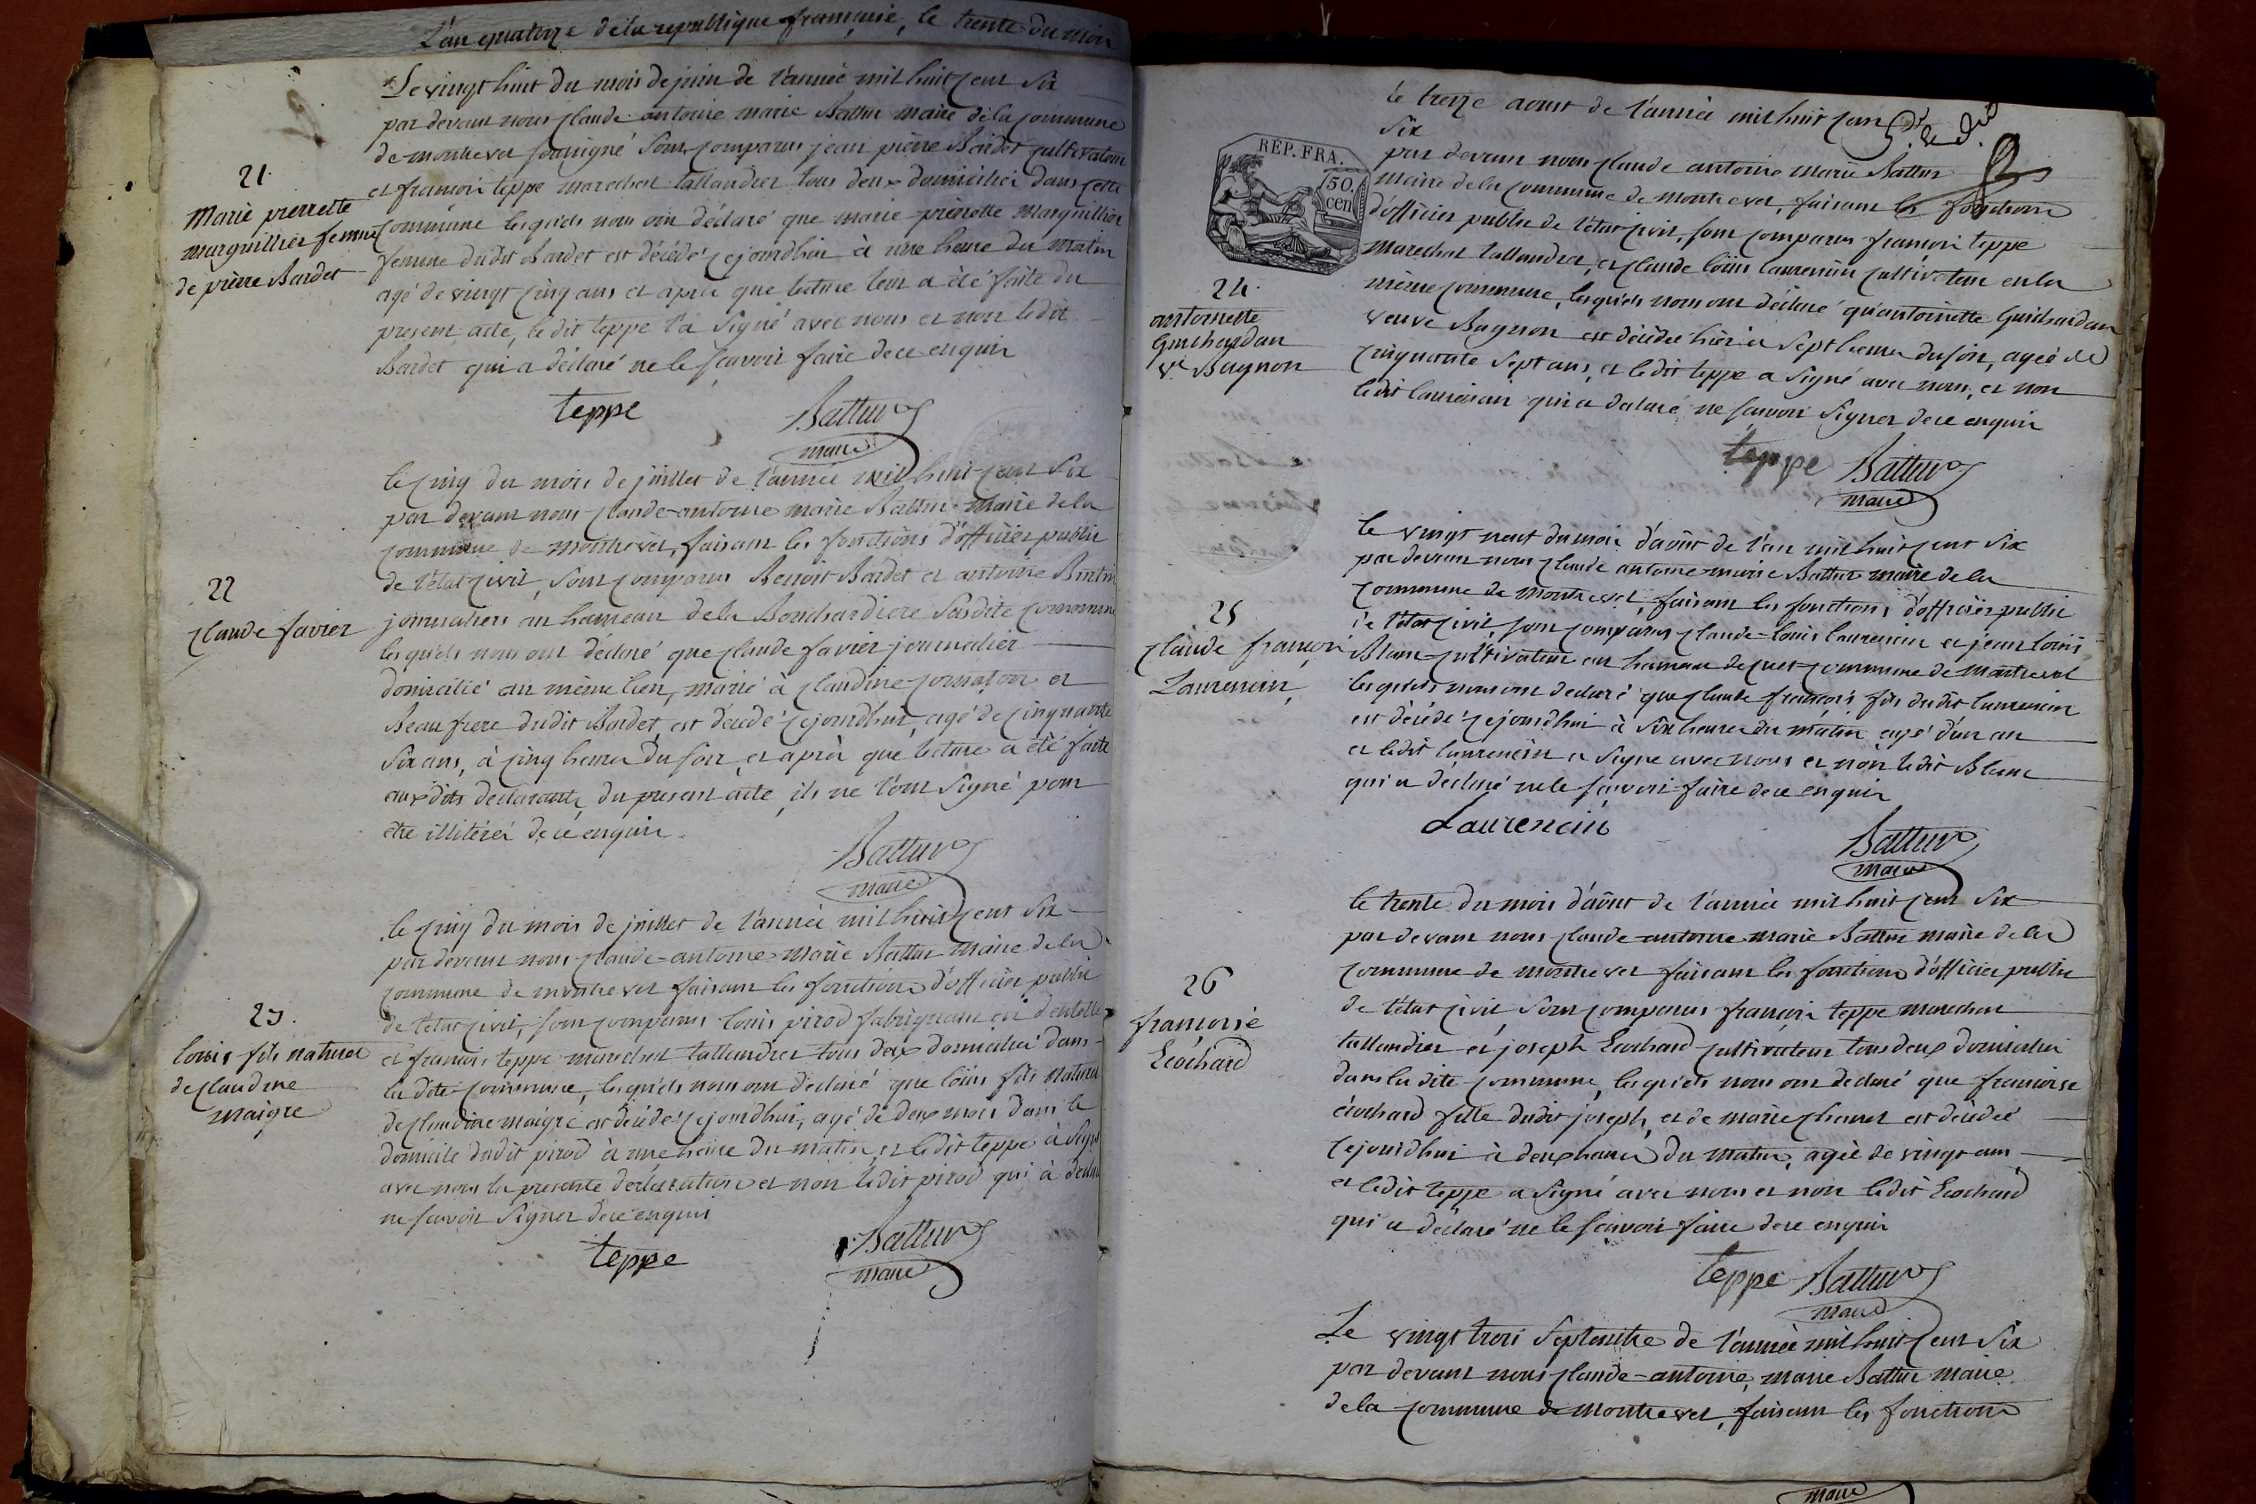 L'an quatorze de la republique française, le trente du mois
Le vingt huit du mois de juin de l'année mil huit cent six
par devant nous claude antoine marie Battur maire de la commune
de montrevel soussigné sont comparus jean pierre Bardet cultivateur
et francois teppe marechal tallandier tous deux domiciliés dans cette
commune lesquels nous ont déclaré que marie pierrette Marguillier
femme dudit Bardet est décédé cejourdhui à une heure du matin
agé de vingt cinq ans et après que lecture leur a été faite du
present acte, le dit teppe l'a signé avec nous et non ledit
Bardet qui a déclaré ne le scavoir faire de ce enquis
21.
Marie pierrette
marguillier femme
de pierre Bardet
teppe
Battur
maire
le cinq du mois de juillet de l'année mil huit cent six
par devant nous claude-antoine marie Battur Maire de la
commune de montrevel, faisant les fonctions d'officier public
de l'état civil, sont comparus Benoit Bardet et antoine Buttin
journaliers au hameau de la Bouchardiere susdite commune
lesquels nous ont déclaré que claude favier journalier
domicilié au même lieu, marié à claudine cornaton et
Beaufrere dudit Bardet, est décédé cejourdhui, agé de cinquante
six ans, à cinq heures du soir, et après que lecture a été faite
auxdits declarants, du present acte, ils ne l'ont signé pour
être illitérés de ce enquis.
22
claude favier
Battur
maire
le cinq du mois de juillet de l'année mil huit cent six
par devant nous claude-antoine-Marie Battur Maire de la
commune de montrevel faisant les fonctions d'officier public
de l'état civil, sont comparus louis pirod fabriquant en dentelle
et francois teppe marechal tallandier tous deux domiciliés dans
la dite commune, lesquels nous ont déclaré que louis fils naturel
de claudine maigre est décédé cejourdhui, agé de deux mois dans le
domicile dudit pirod à une heure du matin, et ledit teppe à signé
avec nous la presente déclaration et non ledit pirod qui à déclaré
ne scavoir signer de ce enquis
23.
louis fils naturel
de claudine
maigre
teppe
Battur
maire
le treize aoust de l'année mil huit cent
six
REP. FRA.
50.
cen
par devant nous claude antoine marie Battur
maire de la commune de montrevel, faisant les fonctions
d'officier public de l'état civil, sont comparus françois teppe
marechal tallandier, et claude louis laurencin cultivateur en la
même commune, lesquels nous ont déclaré qu'antoinette Guichardan
veuve Bugnon est décédée hier à sept heures du soir, agée de
cinquante sept ans, et ledit teppe a signé avec nous, et non
ledit laurencin qui a declaré ne scavoir signer de ce enquis
24.
antoinette
Guichardan
Ve Bugnon
teppe
Battur
maire
le vingt neuf du mois d'août de l'an mil huit cent six
par devant nous claude antoine-marie Battur maire de la
commune de montrevel, faisant les fonctions d'officier public
de l'état civil, sont comparus claude-louis laurencin et jean louis
Blanc cultivateurs au hameau de cuet commune de montrevel
lesquels nous ont declaré que claude francois, fils dudit laurencin
est décédé cejourdhui à six heures du matin agé d'un an
et ledit laurencin a signé avec nous et non ledit Blanc
qui a declaré ne le scavoir faire de ce enquis
25
claude françois
Laurencin
Laurencin
Battur
maire
le trente du mois d'août de l'année mil huit cent six
par devant nous claude antoine marie Battur maire de la
commune de montrevel faisant les fonctions d'officier public
de l'état civil sont comparus françois teppe marechal
tallandier et joseph Ecochard cultivateur tous deux domiciliés
dans la dite commune, lesquels nous ont declaré que francoise
écochard fille dudit joseph, et de marie chevrel est décédée
cejourdhui à deux heures du matin, agée de vingt ans
et ledit teppe a signé avec nous et non ledit Ecochard
qui a déclaré ne le scavoir faire de ce enquis
26
françoise
Ecochard
teppe
Battur
maire
Le vingt trois septembre de l'année mil huit cent six
par devant nous claude-antoine, marie Battur Maire
de la commune de montrevel, faisant les fonctions
maire